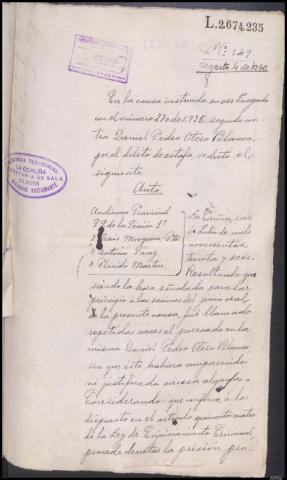 L.2674,235
Nº 149
Agosto 4 de 1936
En la causa instruida en ese Juzgado
con el número 270 de 1.935, seguido con
tra Daniel Pedro Otero Blanco,
por el delito de estafa se dictó el
siguiente
Auto.
AUDIENCIA TERRITORIAL
LA CORUÑA
SECRETARIA DE SALA
Audiencia Provincial
de la Sección 1ª
Antonio
Plácido Martín
La Coruña, seis
de Julio de mil
novecientos
treinta y seis.
Resultando que
siendo la hora señalada para dar
principio a las sesiones del juicio oral
de la presente causa, fué llamado
repetidas veces el procesado en la
misma Daniel Pedro Otero Blanco
sin que este hubiera comparecido
ni justificado causa alguna.
Considerando: que conforme a lo
dispuesto en el artículo quinientos cuatro
de la Ley de Enjuiciamiento Criminal
procede decretar la prisión pro-